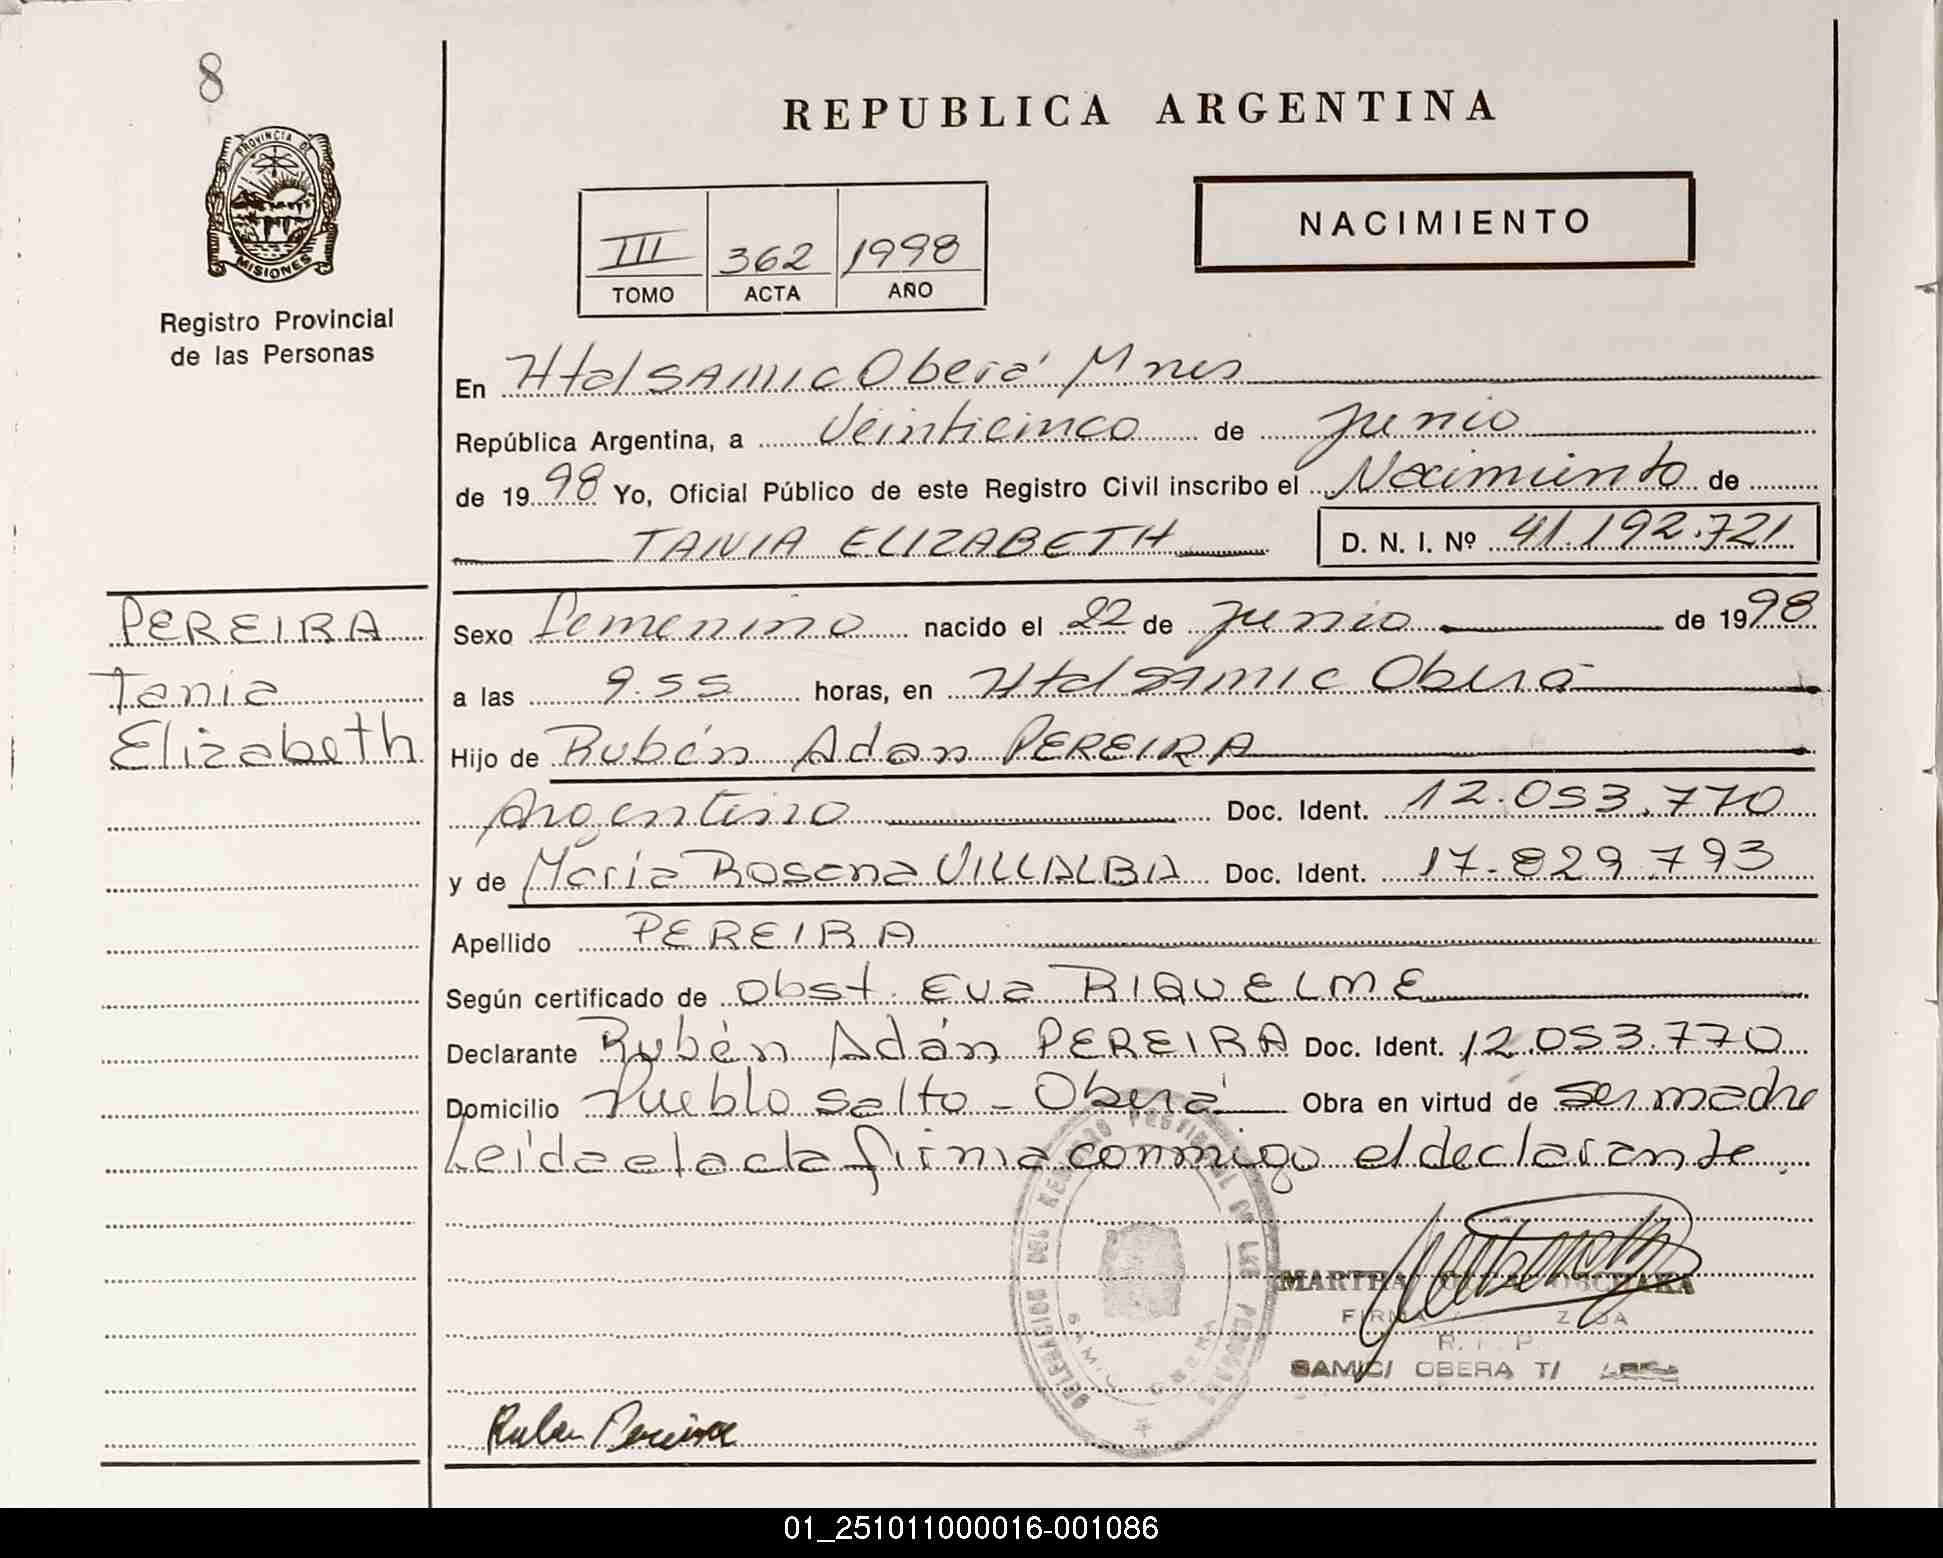 8
PROVINCIA DE
MISIONES
Registro Provincial
de las Personas
REPUBLICA ARGENTINA
III 362 1998
TOMO ACTA AÑO
NACIMIENTO
En Htal SAMIC Oberá Mnes
República Argentina, a Veinticinco de Junio
de 1998 Yo, Oficial Público de este Registro Civil inscribo el Nacimiento de
TANIA ELIZABETH D. N. I. Nº 41.192.721
PEREIRA
Tania
Elizabeth
Sexo Femenino nacido el 22 de Junio de 1998
a las 9.55 horas, en Htal SAMIC Oberá
Hijo de Rubén Adan PEREIRA
Argentino Doc. Ident. 12.053.770
y de Maria Rosana VILLALBA Doc. Ident. 17.829.793
Apellido PEREIRA
Según certificado de Obst. Eva RIQUELME
Declarante Rubén Adán PEREIRA Doc. Ident. 12.053.770
Domicilio Pueblo Salto - Oberá Obra en virtud de ser madre
Leída el acta firma conmigo el declarante
DELEGACION DEL REGISTRO PROVINCIAL DE LAS PERSONAS
MARTHA
FIRMA
R. P.
SAMIC/ OBERA T/
Ruben Pereira
01_251011000016-001086